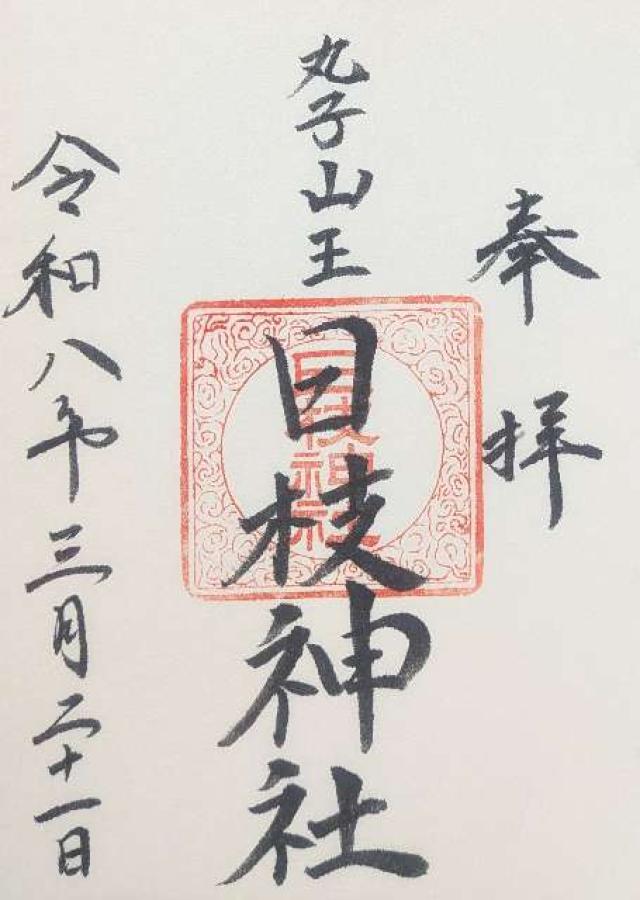 奉拝
丸子山王
日枝神社
日枝神社
令和八年三月二十一日